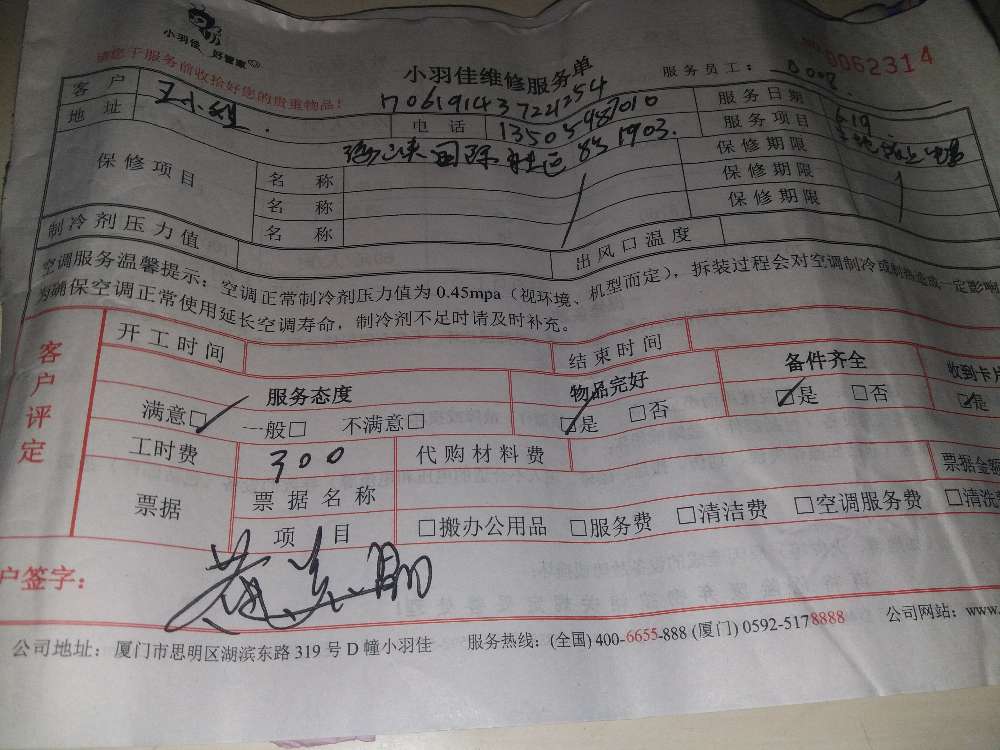 小羽佳 好管家
请您于服务前收拾好您的贵重物品！
小羽佳维修服务单
服务员工：0008
NO 0062314
客户 王小姐 7061914372 4254 服务日期 6.19
地址 电话 服务项目
国际 1903. 保修期限
保修项目 名称 保修期限
名称 保修期限
名称
制冷剂压力值 出风口温度
空调服务温馨提示：空调正常制冷剂压力值为0.45mpa（视环境、机型而定），拆装过程会对空调制冷或制热造成一定影响
为确保空调正常使用延长空调寿命，制冷剂不足时请及时补充。
客户评定
开工时间 结束时间
服务态度 物品完好 备件齐全 收到卡片
满意□ 一般□ 不满意□ □是 □否 □是 □否 □是
工时费 300 代购材料费
票据 票据名称 票据金额
项目 □搬办公用品 □服务费 □清洁费 □空调服务费 □清洗
户签字：
公司地址：厦门市思明区湖滨东路319号D幢小羽佳 服务热线：(全国) 400-6655-888 (厦门) 0592-5178888 公司网站：www.